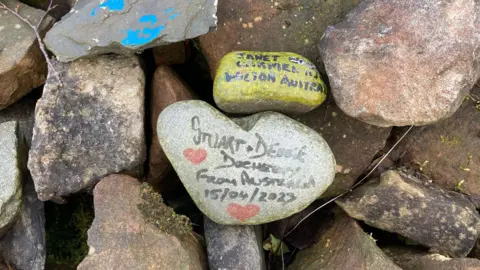 JANET
WILTON AUSTRA
STUART + DEBBIE
DOCHERTY
FROM AUSTRALIA
15/04/2023